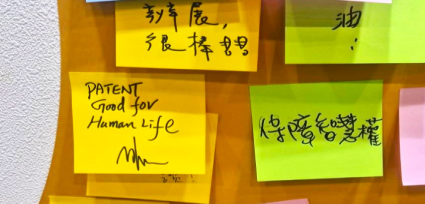 很棒
油
!
PATENT
Good for
Human Life
保障智慧權